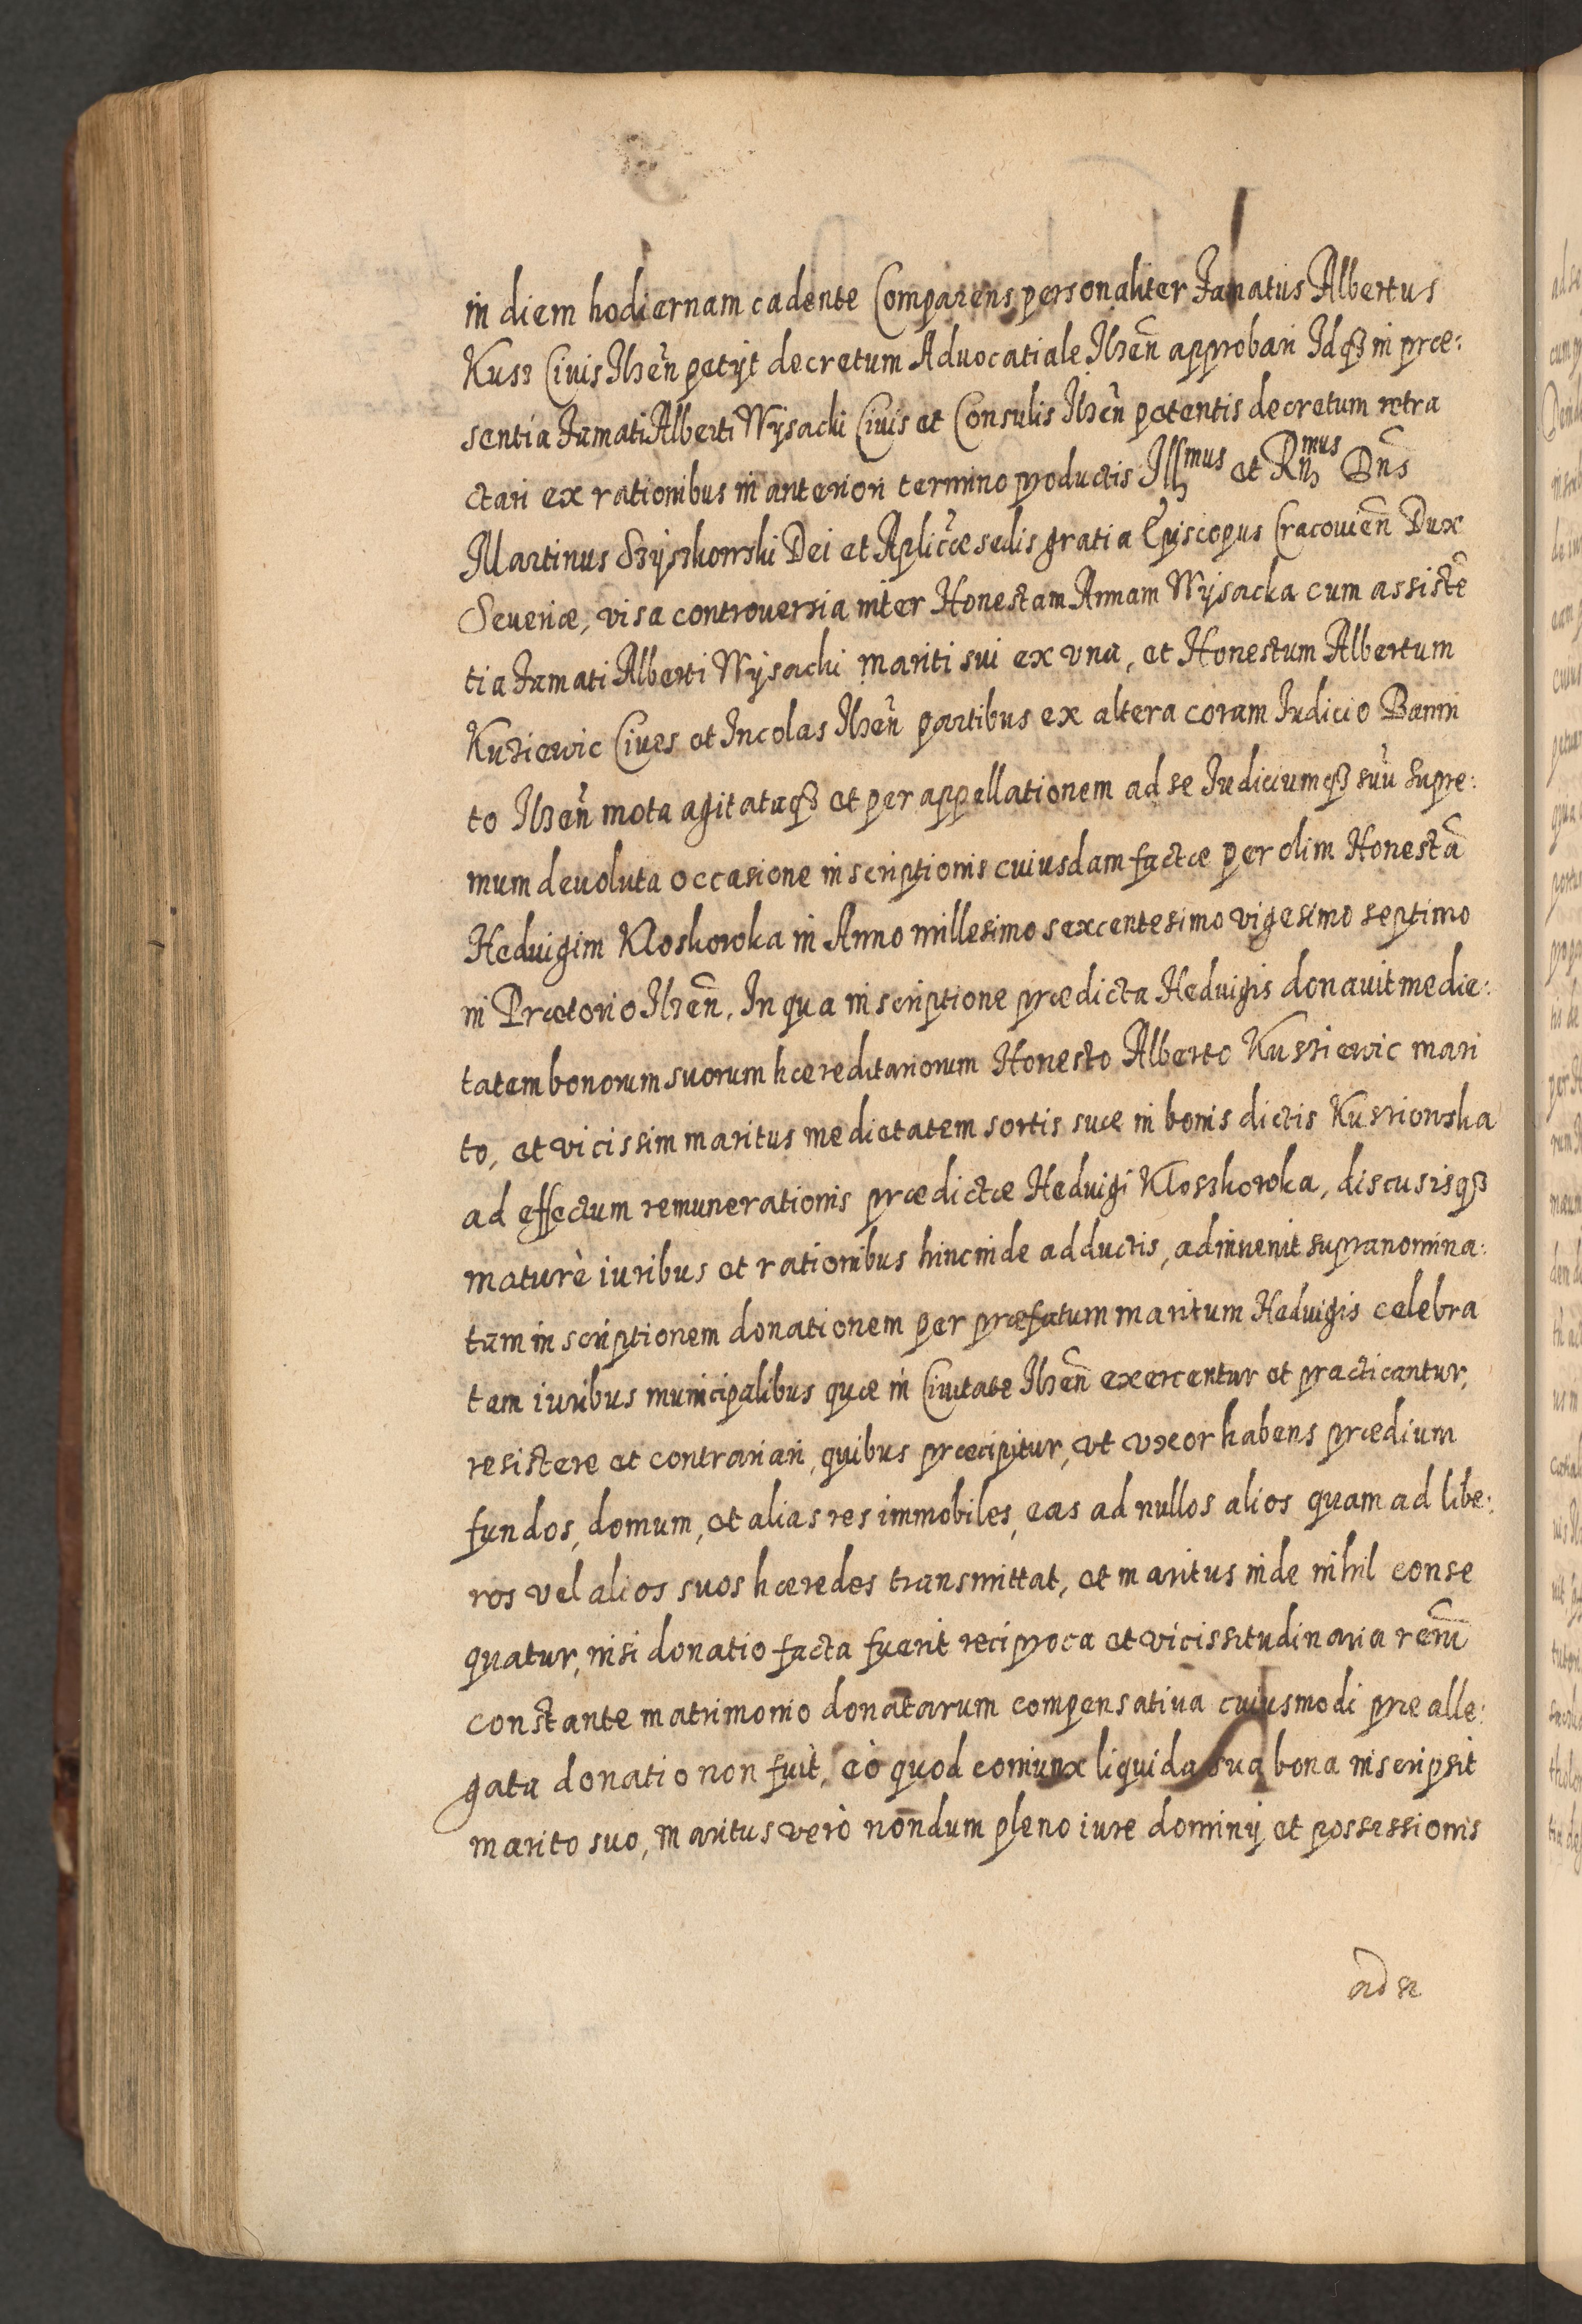 in diem hodiernam cadente Comparens personaliter Famatus Albertus
Kuss Ciuis Ilzen̄ petÿt decretum Aduocatiale Ilzen̄ approbari Idqꝫ in præ:
sentia Famati Alberti Wÿsacki Ciuis et Consulis Ilzen̄ petentis decretum retra
ctari ex rationibus in anteriori termino productis Illmus et Rn̄mus Dn̄s
Martinus Szÿszkowski Dei et Aplicæ sedis gratia Episcopus Cracouien̄ Dux
Seueriæ, visa controuersia inter Honestam Annam Wÿsacka cum assistē
tia Famati Alberti Wÿsacki mariti sui ex vna, et Honestum Albertum
Kuziewic Ciues et Incolas Ilzen̄ partibus ex altera coram Iudicio Banni
to Ilzen̄ mota agitataqꝫ et per appellationem ad se Iudiciumqꝫ suū supre:
mum deuoluta occasione inscriptionis cuiusdam factæ per olim Honestā
Heduigim Kloskowka in Anno millesimo sexcentesimo vigesimo septimo
in Prætorio Ilzen̄. In qua inscriptione prædicta Heduigis donauit medie:
tatem bonorum suorum hæreditariorum Honesto Alberto Kussiewic mari
to, et vicissim maritus medietatem sortis suæ in bonis dictis Kussionska
ad effectum remunerationis prædictæ Heduigi Kloszkowka, discusisqꝫ
maturè iuribus et rationibus hincinde adductis, adinuenit supranomina:
tam inscriptionem donationem per præfatum maritum Heduigis celebra
tam iuribus municipalibus quæ in Ciuitate Ilzen̄ exercentur et practicantur,
resistere et contrariari, quibus præcipitur, vt vxor habens prædium
fundos, domum, et alias res immobiles, eas ad nullos alios quam ad libe:
ros vel alios suos hæredes transmittat, et maritus inde nihil conse
quatur, nisi donatio facta fuerit reciproca et vicissitudinaria rerū
constante matrimonio donatarum compensatiua cuiusmodi præ alle:
gata donatio non fuit, eò quod coniunx liquida sua bona inscripsit
marito suo, maritus verò nondum pleno iure dominÿ et possessionis
ad se